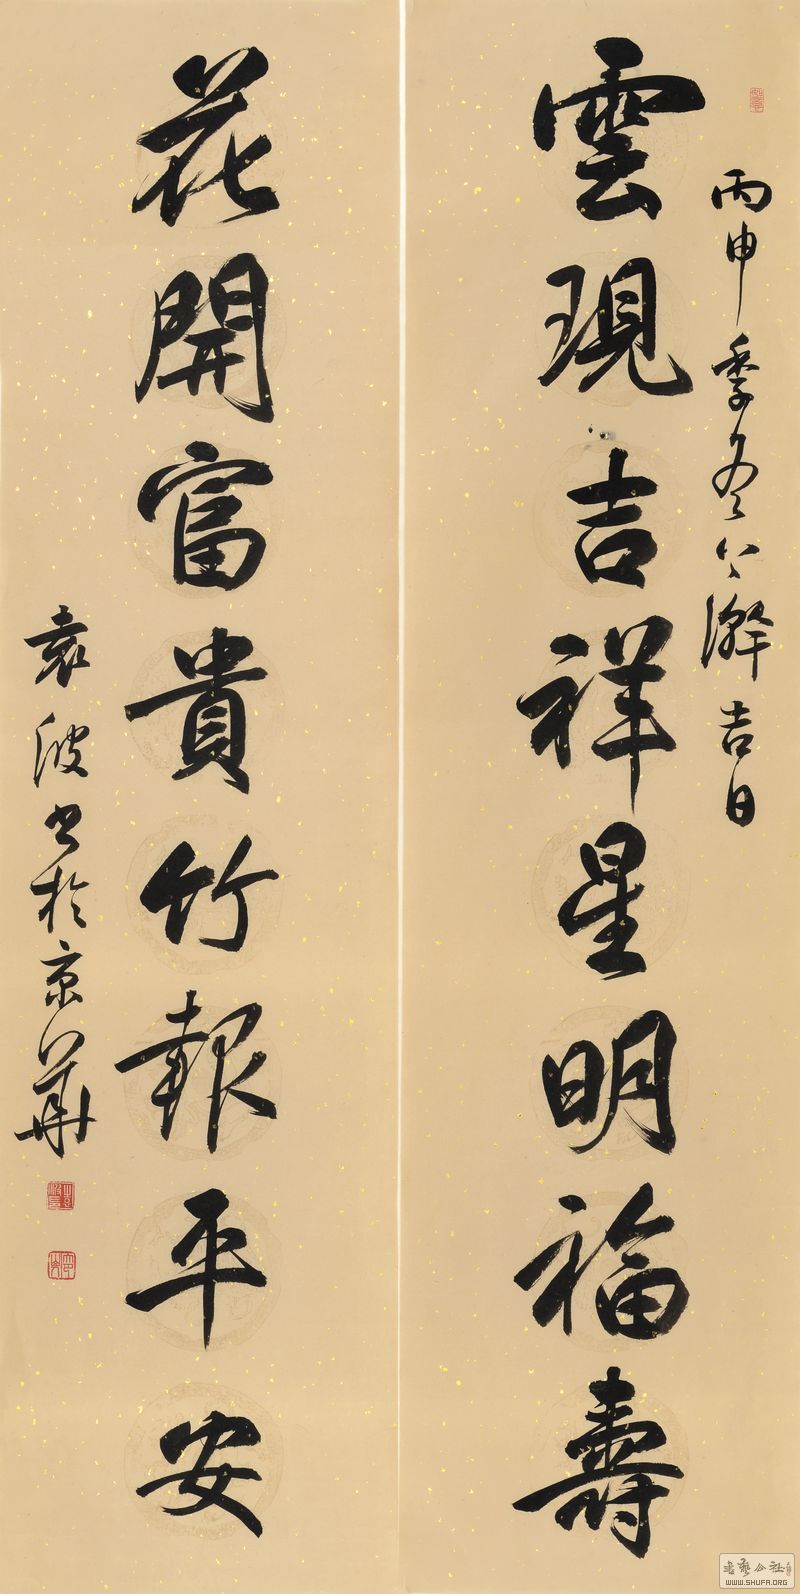 丙申季冬上澣吉日
雲現吉祥星明福壽
花開富貴竹報平安
袁波書於京華
書藝公社
WWW.SHUFA.ORG